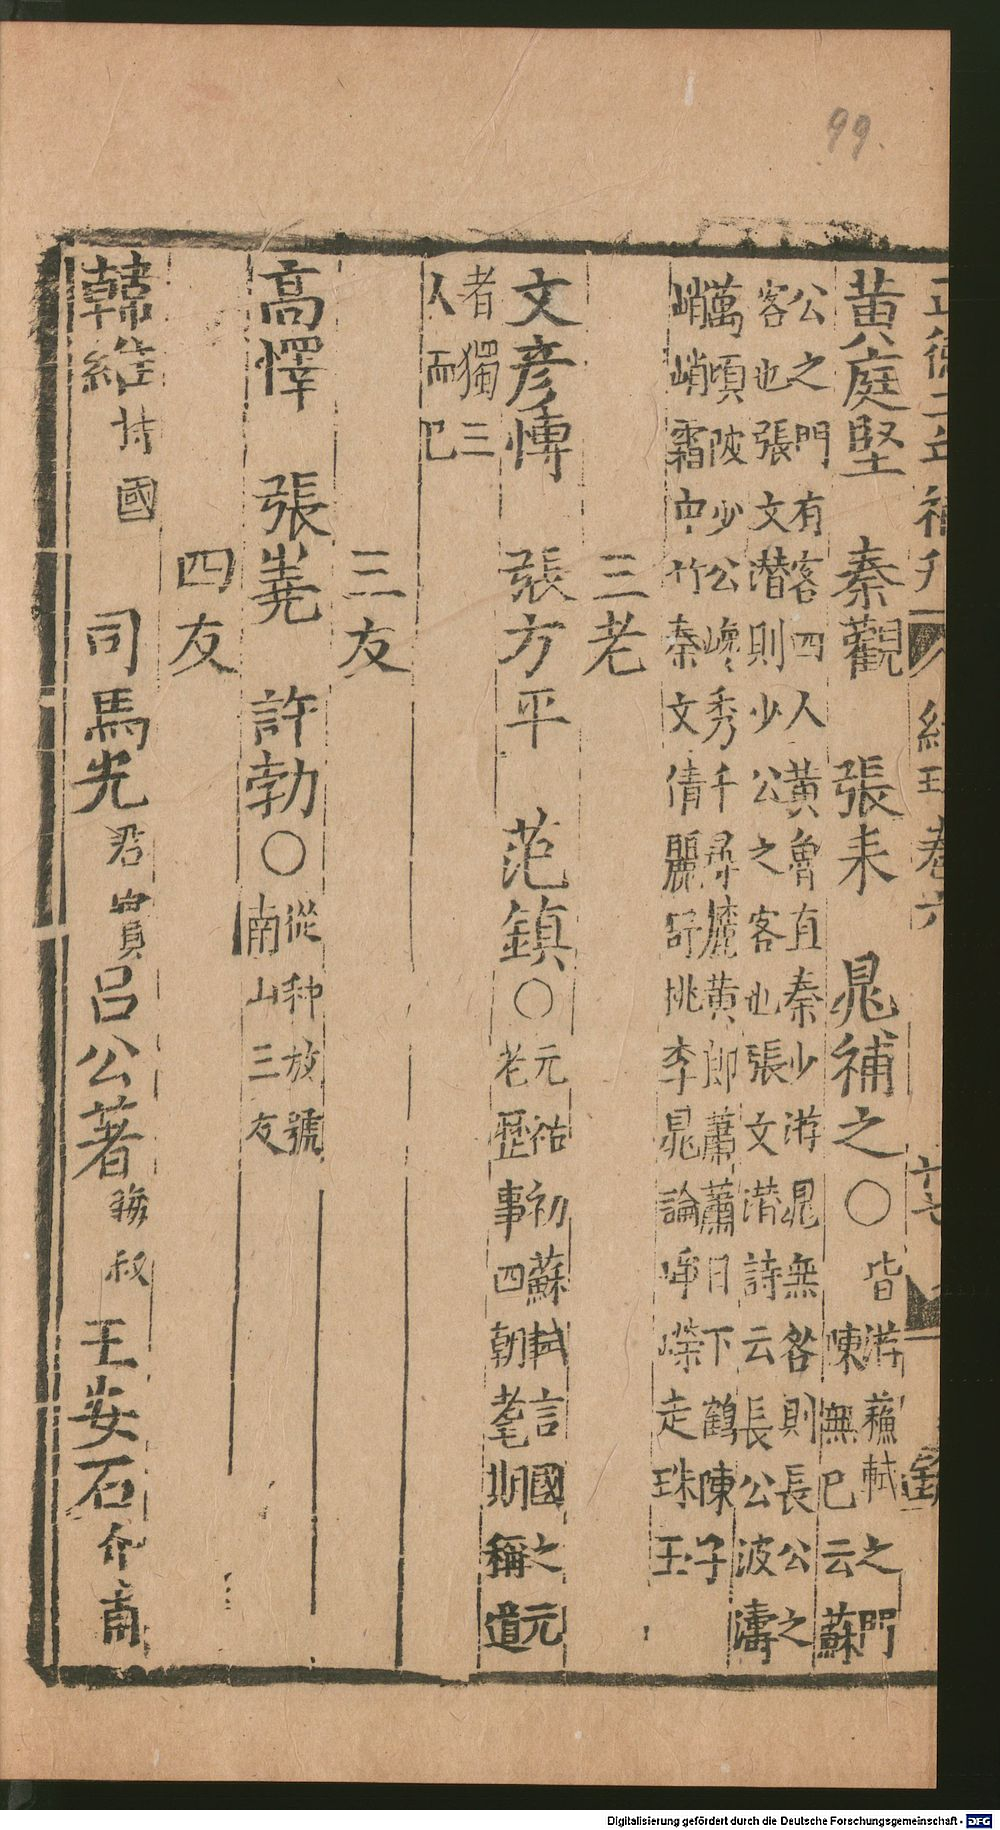 99.
黄庭堅　秦觀　張耒　晁補之〇皆游蘓軾之門
陳無巳云蘇
公之門有客四人黄魯直秦少游晁無咎則長公之
客也張文潜則少公之客也張文潜詩云長公波濤
萬頃陂少公巉秀千尋麓黄郎蕭蕭日下鶴陳子
峭峭霜中竹秦文倩麗舒桃李晁論崢嶸走珠玉
三老
文彦博　張方平　范鎮〇元祐初蘇軾言國之元
老歴事四朝耄期稱道
者獨三
人而巳
三友
高懌　張蕘　許勃〇從种放號
南山三友
四友
韓維持國　司馬光君實呂公著晦叔王安石介甫
Digitalisierung gefördert durch die Deutsche Forschungsgemeinschaft - DFG